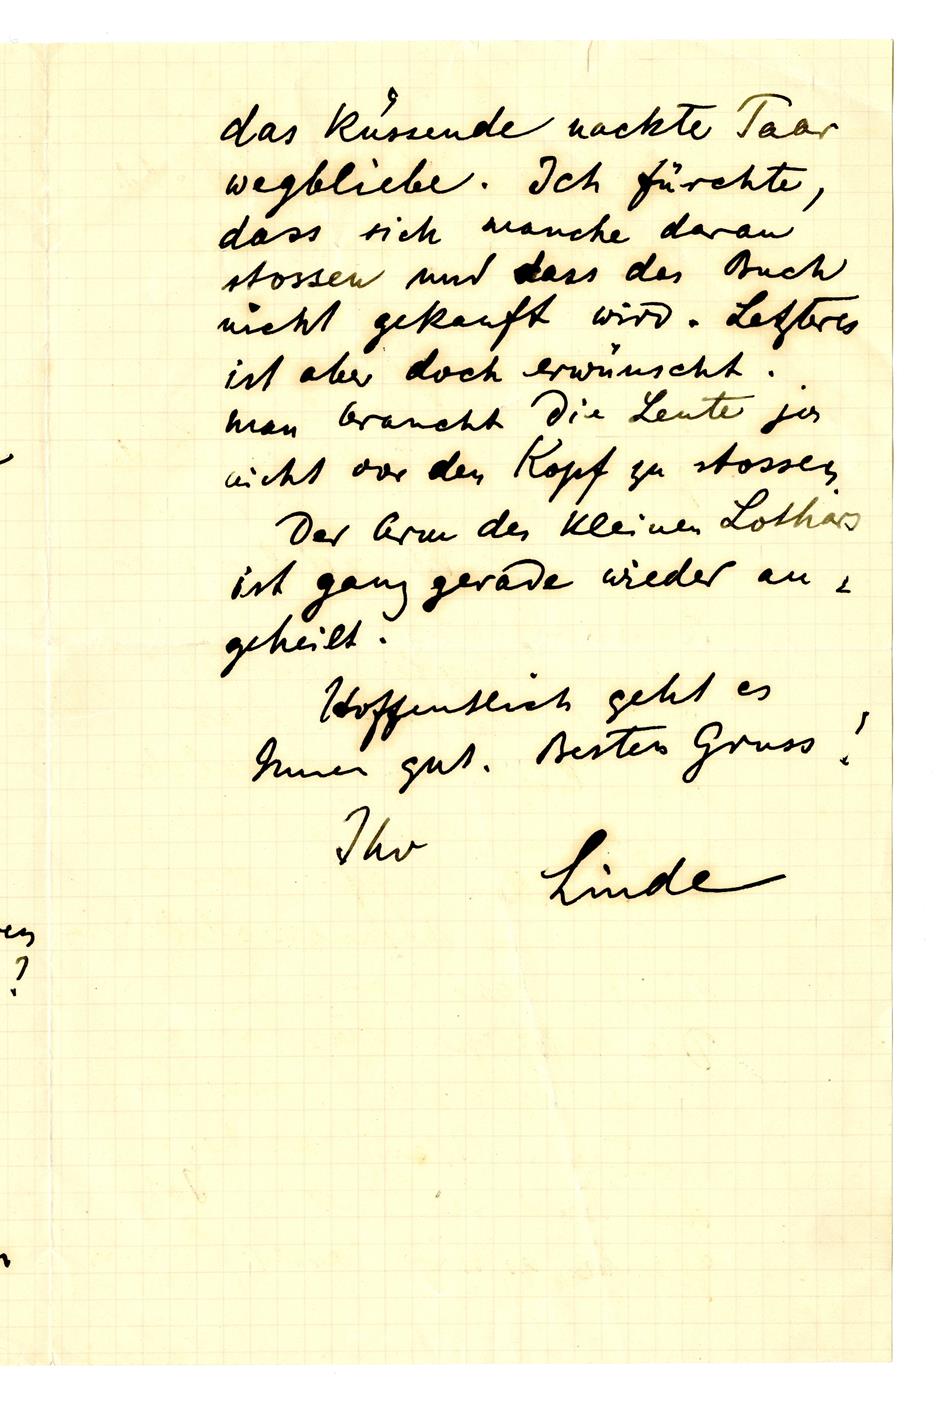 das küssende nackte Paar
wegbliebe. Ich fürchte,
dass sich manche daran
stossen und dass das Buch
nicht gekauft wird. Letzteres
ist aber doch erwünscht.
Man braucht die Leute ja
nicht vor den Kopf zu stossen
Der Arm des kleinen Lothars
ist ganz gerade wieder an-
geheilt.
Hoffentlich geht es
Ihnen gut. Besten Gruss!
Ihr
Linde
?